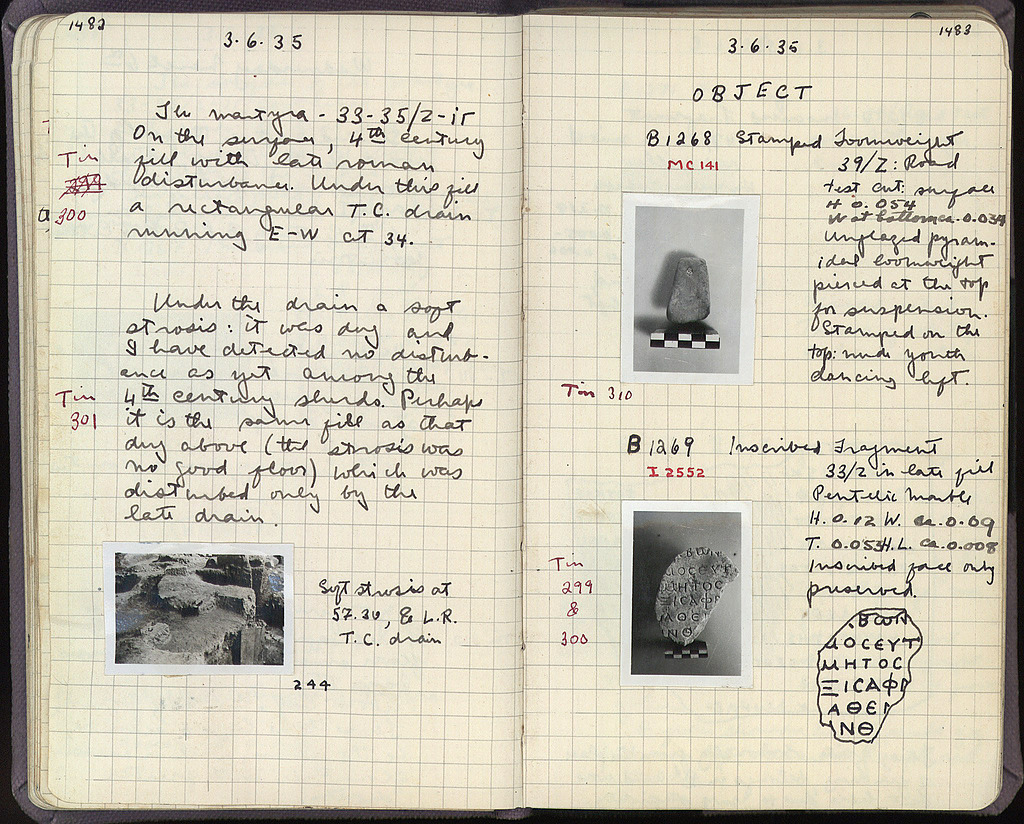 1482
3·6·35
The martyra - 33-35/Z-ΙΓ
On the surface, 4th century
fill with late roman
disturbance. Under this fill
a rectangular T.C. drain
running E-W at 34.
Tin
299
300
Under the drain a soft
strosis: it was dug and
I have detected no disturb-
ance as yet among the
4th century sherds. Perhaps
it is the same fill as that
dug above (the strosis was
no good floor) which was
disturbed only by the
late drain.
Tin
301
Soft strosis at
57.30, & L.R.
T.C. drain
244
1483
3·6·35
OBJECT
B1268 Stamped Loomweight
MC 141
39/Z: Road
test cut: surface
H 0.054
W at bottom ca. 0.034
Unglazed pyram-
idal loomweight
pierced at the top
for suspension.
Stamped on the
top: nude youth
dancing left.
Tin 310
B 1269 Inscribed Fragment
I 2552
33/Z in late fill
Pentelic Marble
H. 0.12 W. ca. 0.09
T. 0.053 H.L. ca. 0.008
Inscribed face only
preserved.
Tin
299
&
300
ΒωΝ
ΜΟCΕΥΤ
ΜΗΤΟC
ΞΙCΑΦΡ
ΑΘΕΓ
ΙΝΘ